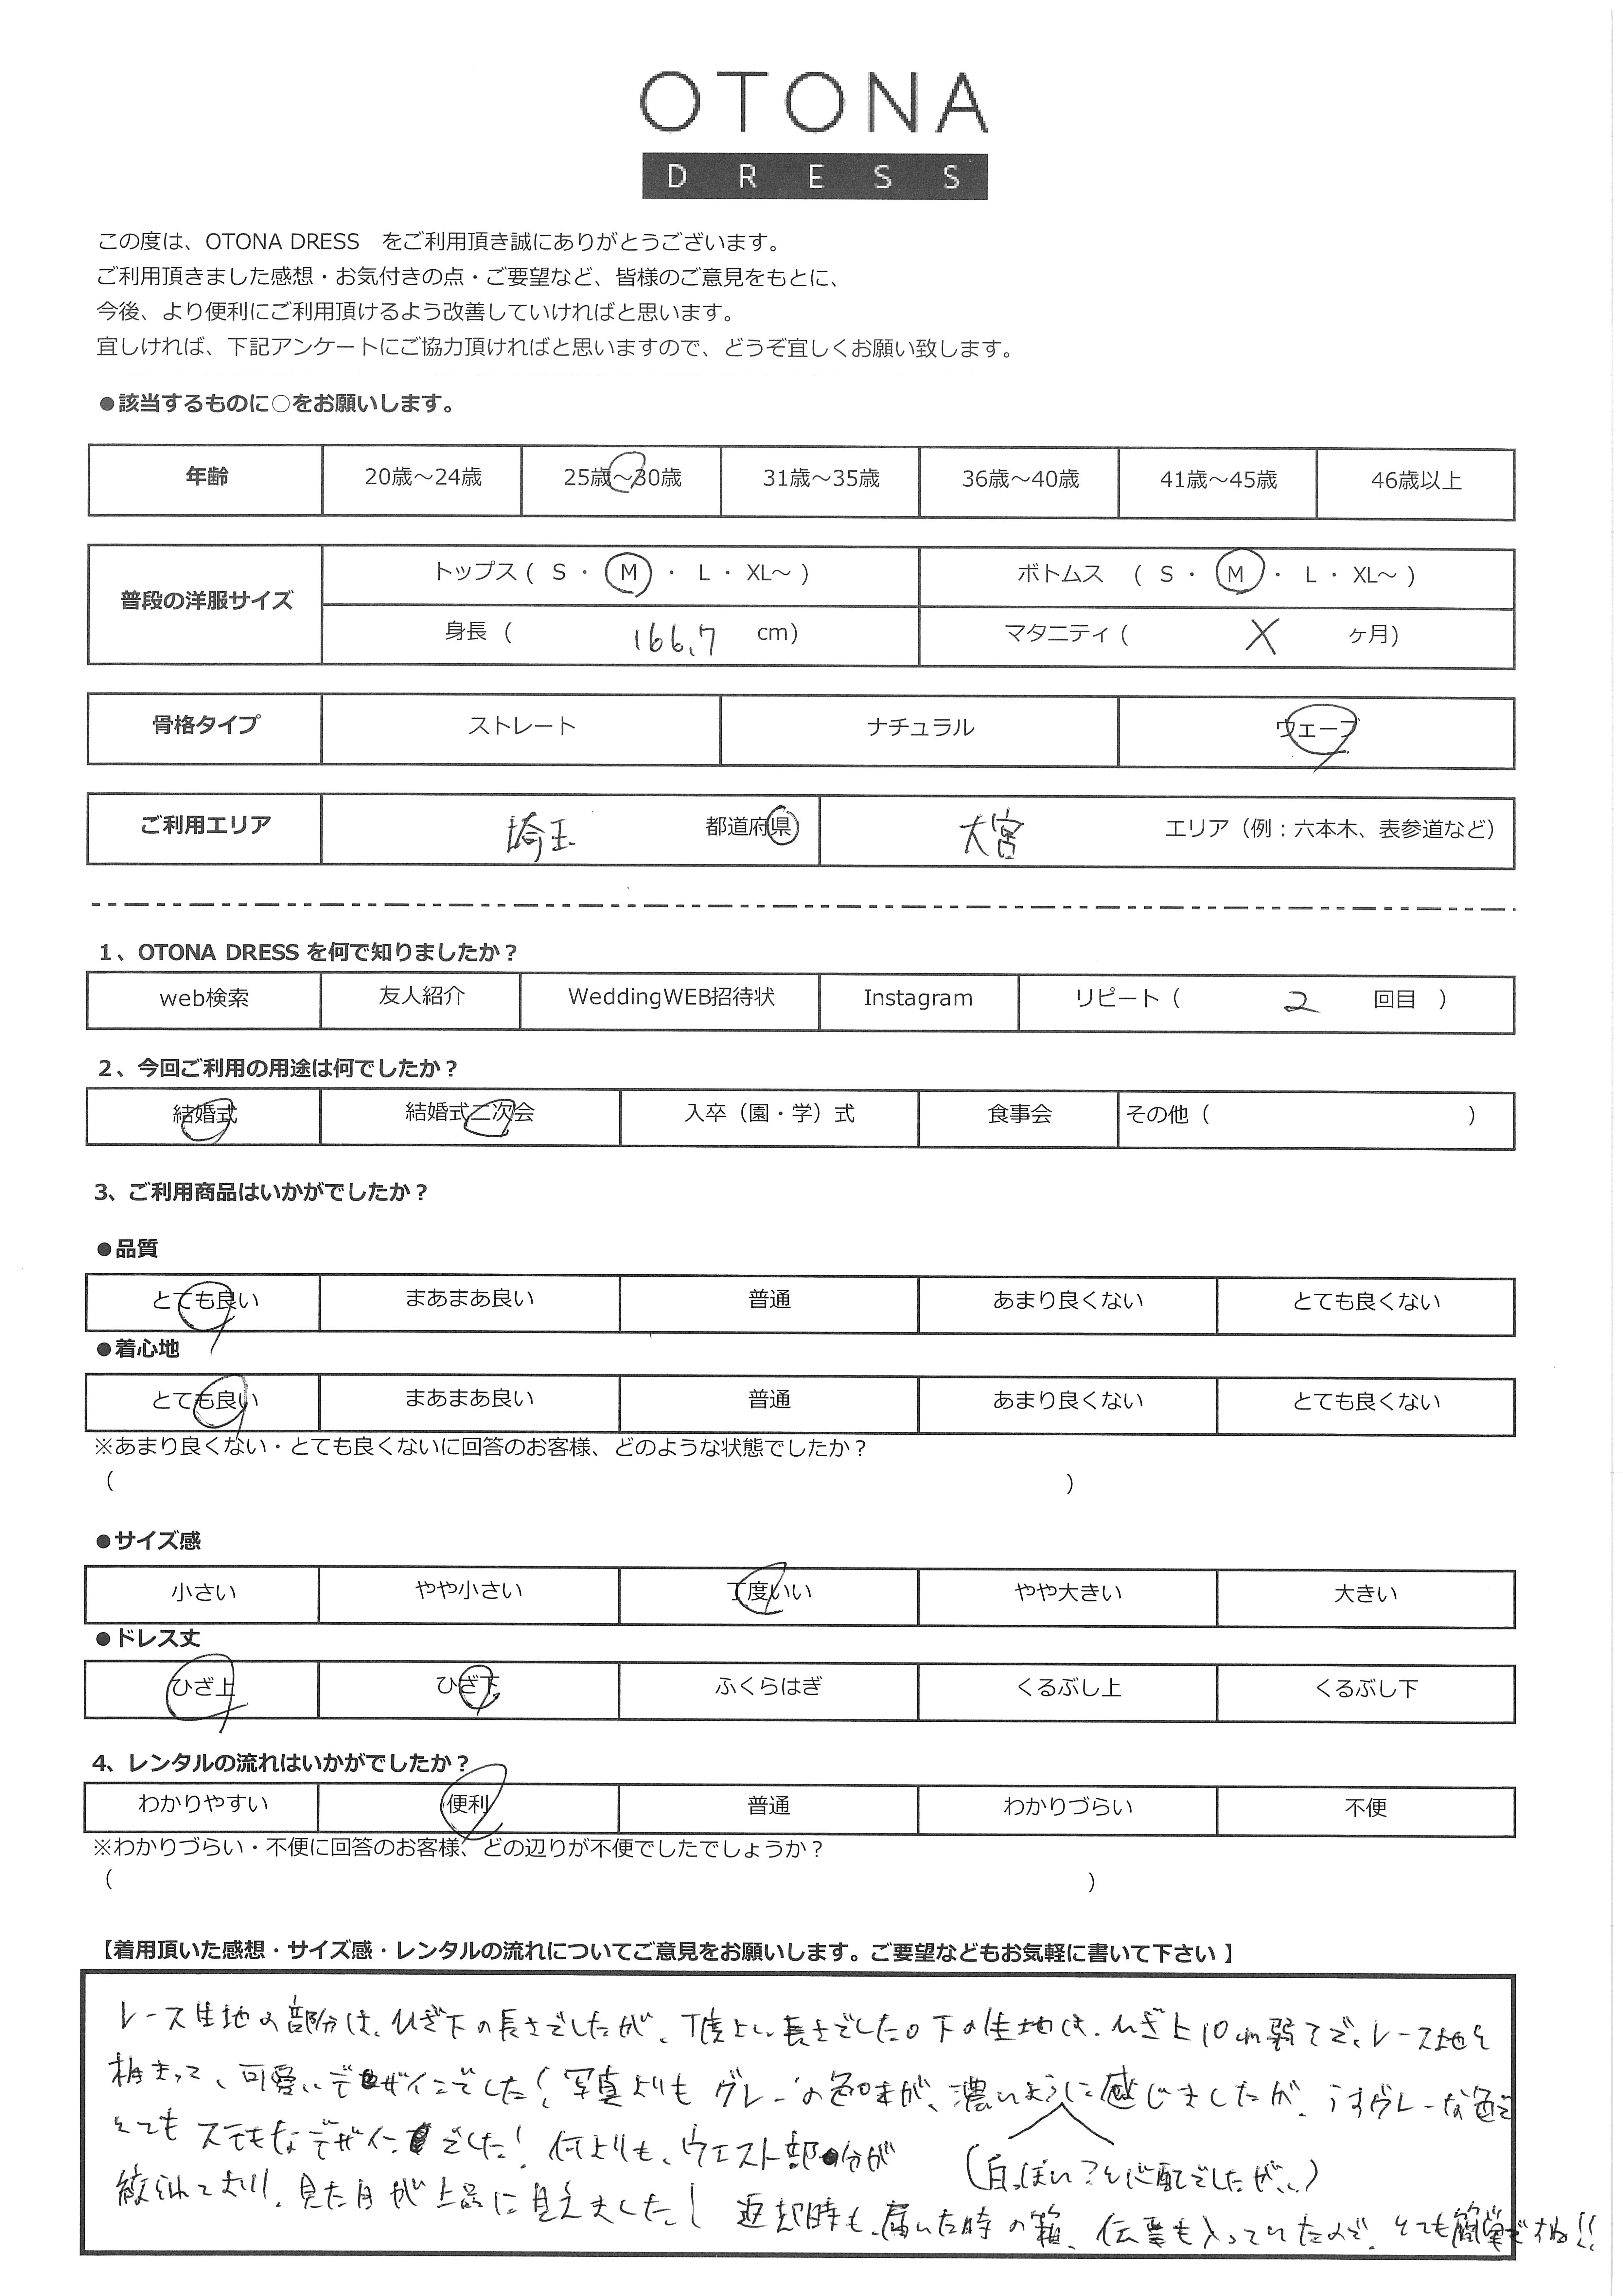 OTONA
DRESS
この度は、OTONA DRESS　をご利用頂き誠にありがとうございます。
ご利用頂きました感想・お気付きの点・ご要望など、皆様のご意見をもとに、
今後、より便利にご利用頂けるよう改善していければと思います。
宜しければ、下記アンケートにご協力頂ければと思いますので、どうぞ宜しくお願い致します。
●該当するものに○をお願いします。
年齢 20歳～24歳 25歳～30歳 31歳～35歳 36歳～40歳 41歳～45歳 46歳以上
普段の洋服サイズ
トップス ( S ・ M ・ L ・ XL～ ) ボトムス ( S ・ M ・ L ・ XL～ )
身長 ( 166.7 cm) マタニティ ( X ヶ月)
骨格タイプ ストレート ナチュラル ウェーブ
ご利用エリア 埼玉 都道府県 大宮 エリア（例：六本木、表参道など）
1、OTONA DRESS を何で知りましたか？
web検索 友人紹介 WeddingWEB招待状 Instagram リピート（ 2 回目 ）
2、今回ご利用の用途は何でしたか？
結婚式 結婚式二次会 入卒（園・学）式 食事会 その他（ ）
3、ご利用商品はいかがでしたか？
●品質
とても良い まあまあ良い 普通 あまり良くない とても良くない
●着心地
とても良い まあまあ良い 普通 あまり良くない とても良くない
※あまり良くない・とても良くないに回答のお客様、どのような状態でしたか？
（ ）
●サイズ感
小さい やや小さい 丁度いい やや大きい 大きい
●ドレス丈
ひざ上 ひざ下 ふくらはぎ くるぶし上 くるぶし下
4、レンタルの流れはいかがでしたか？
わかりやすい 便利 普通 わかりづらい 不便
※わかりづらい・不便に回答のお客様、どの辺りが不便でしたでしょうか？
（ ）
【着用頂いた感想・サイズ感・レンタルの流れについてご意見をお願いします。ご要望などもお気軽に書いて下さい 】
レース生地の部分は、ひざ下の長さでしたが、丁度よい長さでした。下の生地は、ひざ上10cm弱で、レース地と
相まって、可愛いデザインでした！写真よりもグレーの色味が、濃いように感じましたが、うすグレーな色で
とてもステキなデザインでした！何よりも、ウエスト部分が
（白っぽい？と心配でしたが、、）
絞られており、見た目が上品に見えました！返却時も、届いた時の箱、伝票も入っていたので、とても簡単ですね!!